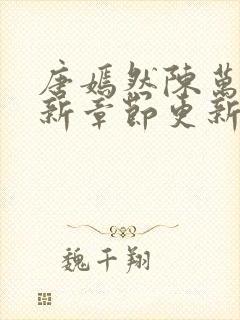 唐嫣然陳萬
新章節更新
魏千翔